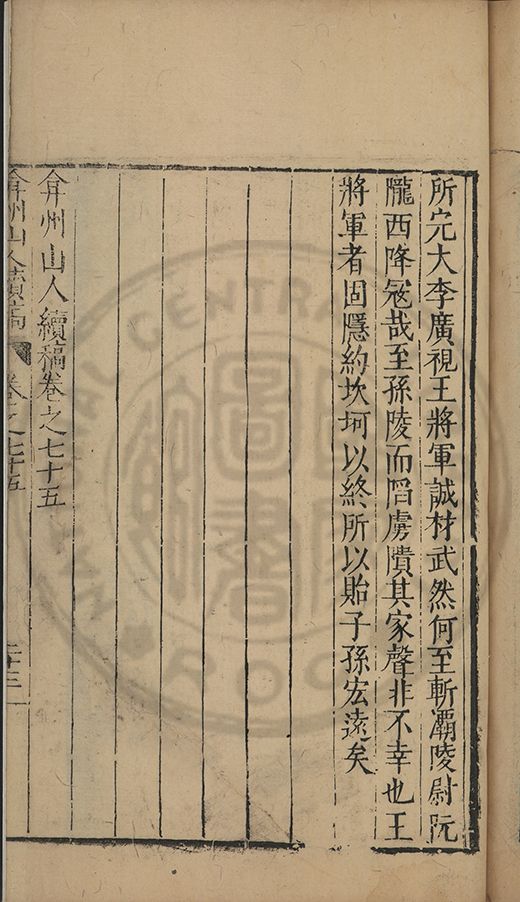 所完大李廣視王將軍誠材武然何至斬灞陵尉阬
隴西降冦哉至孫陵而陷虜隤其家聲非不幸也王
將軍者固隱約坎坷以終所以貽子孫宏遠矣
弇州山人續稿卷之七十五
弇州山人續稿 卷之七十五 二十三